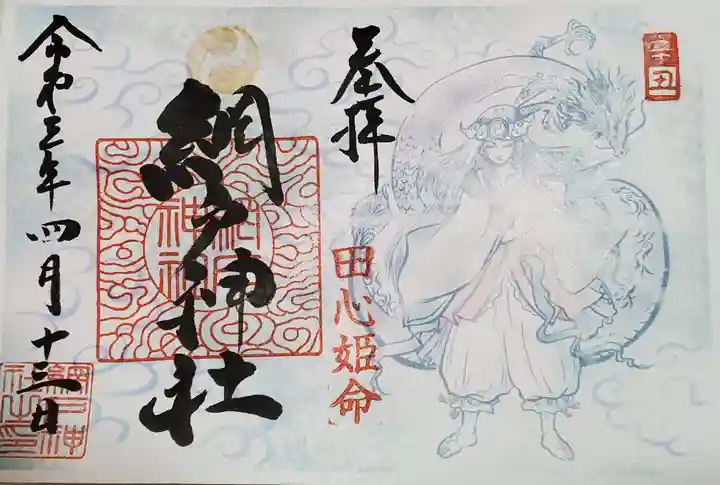 辛丑
奉拝
田心姫命
網戸神社
令和三年四月十三日
網戸神社之印